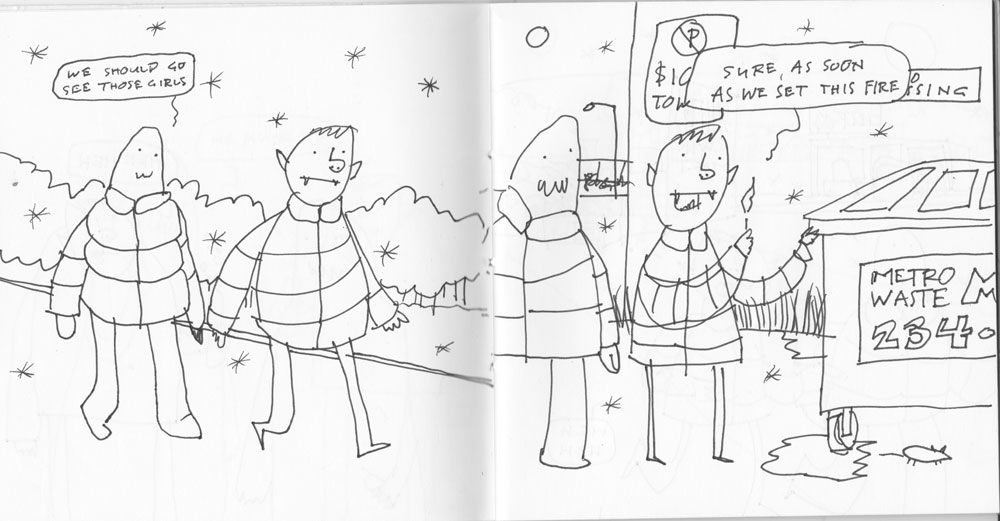 WE SHOULD GO
SEE THOSE GIRLS
P
$10
TOW
SURE, AS SOON
AS WE SET THIS FIRE
METRO
WASTE M
2340